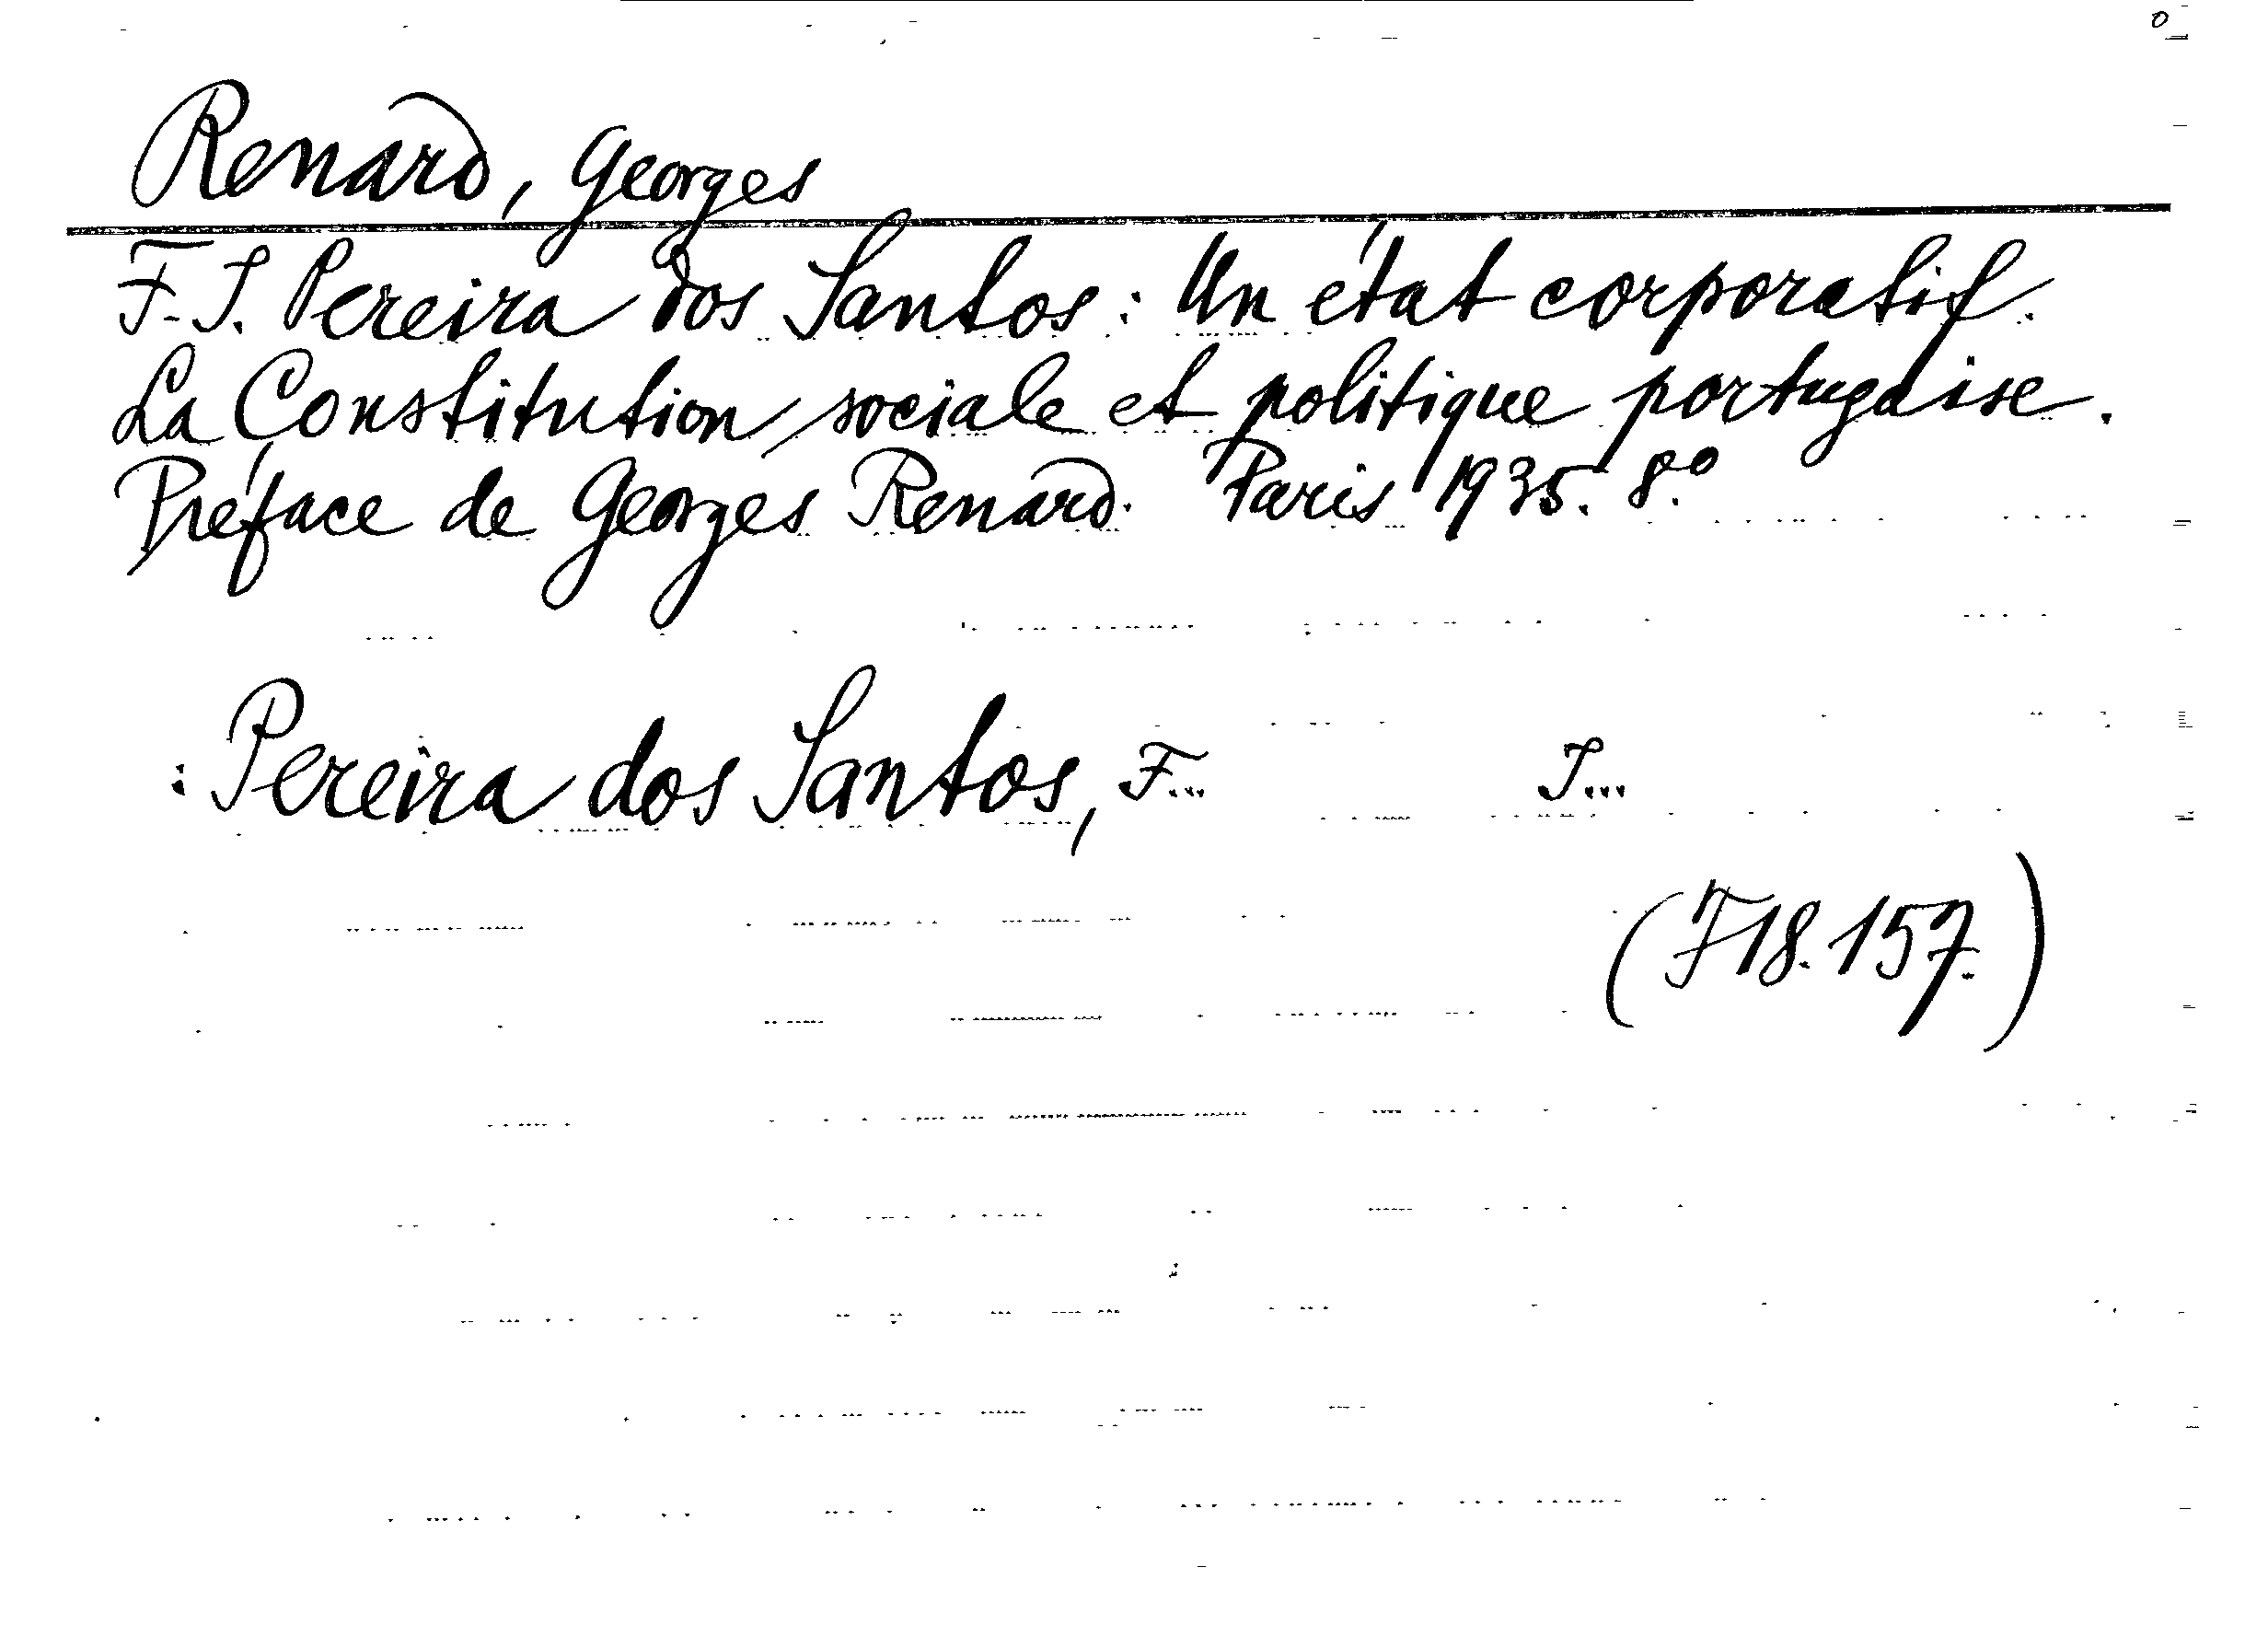 o
Renard, Georges
F. I. Pereira dos Santos: Un état corporatif.
La Constitution sociale et politique portugaise.
Préface de Georges Renard. Paris 1935. 8.º
: Pereira dos Santos, F... I...
(718.157.)